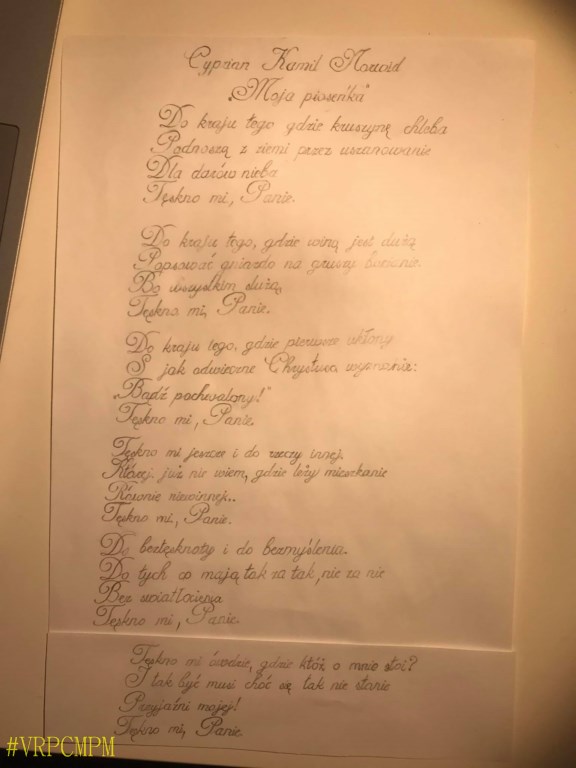 Cyprian Kamil Norwid
„Moja piosenka"
Do kraju tego gdzie kruszynę chleba
Podnoszą z ziemi przez uszanowanie
Dla darów nieba
Tęskno mi, Panie.
Do kraju tego, gdzie winą jest dużą
Popsować gniazdo na gruszy bocianie.
Bo wszystkim służą,
Tęskno mi, Panie.
Do kraju tego, gdzie pierwsze ukłony
S jak odwieczne Chrystusa wyznanie:
„Bądź pochwalony!"
Tęskno mi, Panie.
Tęskno mi jeszcze i do rzeczy innej.
Której już nie wiem, gdzie leży mieszkanie
Równie niewinnej..
Tęskno mi, Panie.
Do beztęsknoty i do bezmyślenia.
Do tych co mają tak za tak, nie za nie
Bez światłocienia
Tęskno mi, Panie.
Tęskno mi ówdzie, gdzie któż o mnie stoi?
I tak być musi choć się tak nie stanie
Przyjaźni mojej!
Tęskno mi, Panie.
#VRPCMPM